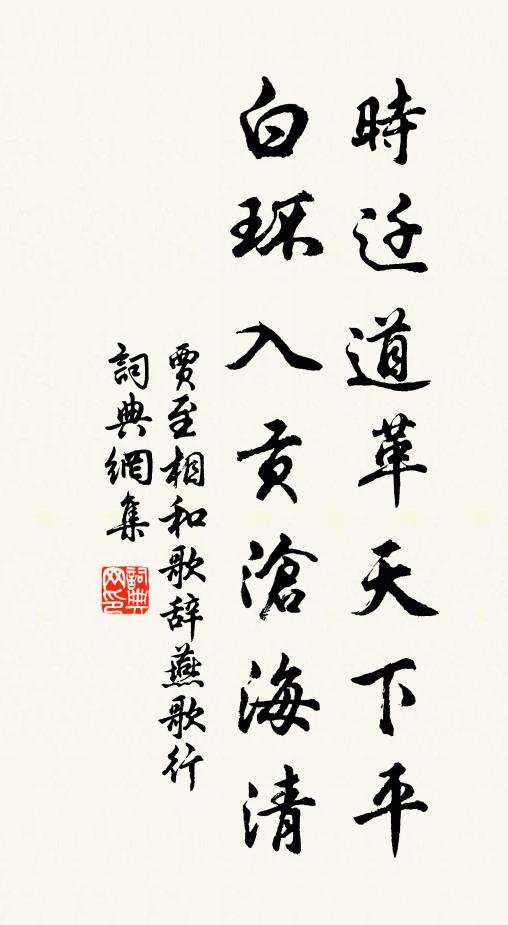 時迁道革天下平
白环入贡滄海清
贾至相和歌辞燕歌行
詞典網集
詞典网印